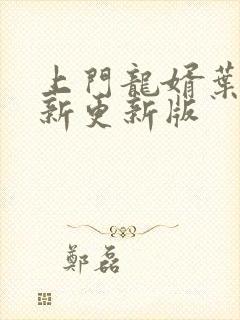 上門龍婿葉
新更新版
鄭磊